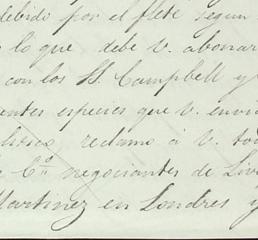 debido por el flete segun
lo que debe V. abonar
con los SS. Campbell y
entes especies que V. envi
reclamo á V. to
Cª. negociantes de Liv
Martinez en Londres y